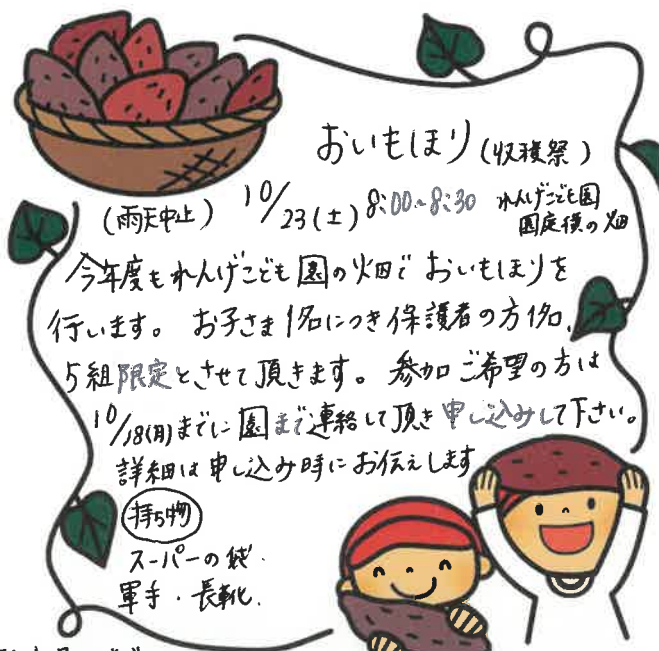 おいもほり(収穫祭)
(雨天中止) 10/23(土) 8:00~8:30 れんげこども園
園庭横の畑
今年度もれんげこども園の畑でおいもほりを
行います。 お子さま1名につき保護者の方1名、
5組限定とさせて頂きます。参加ご希望の方は
10/18(月)までに園まで連絡して頂き申し込みして下さい。
詳細は申し込み時にお伝えします
持ち物
スーパーの袋.
軍手・長靴.